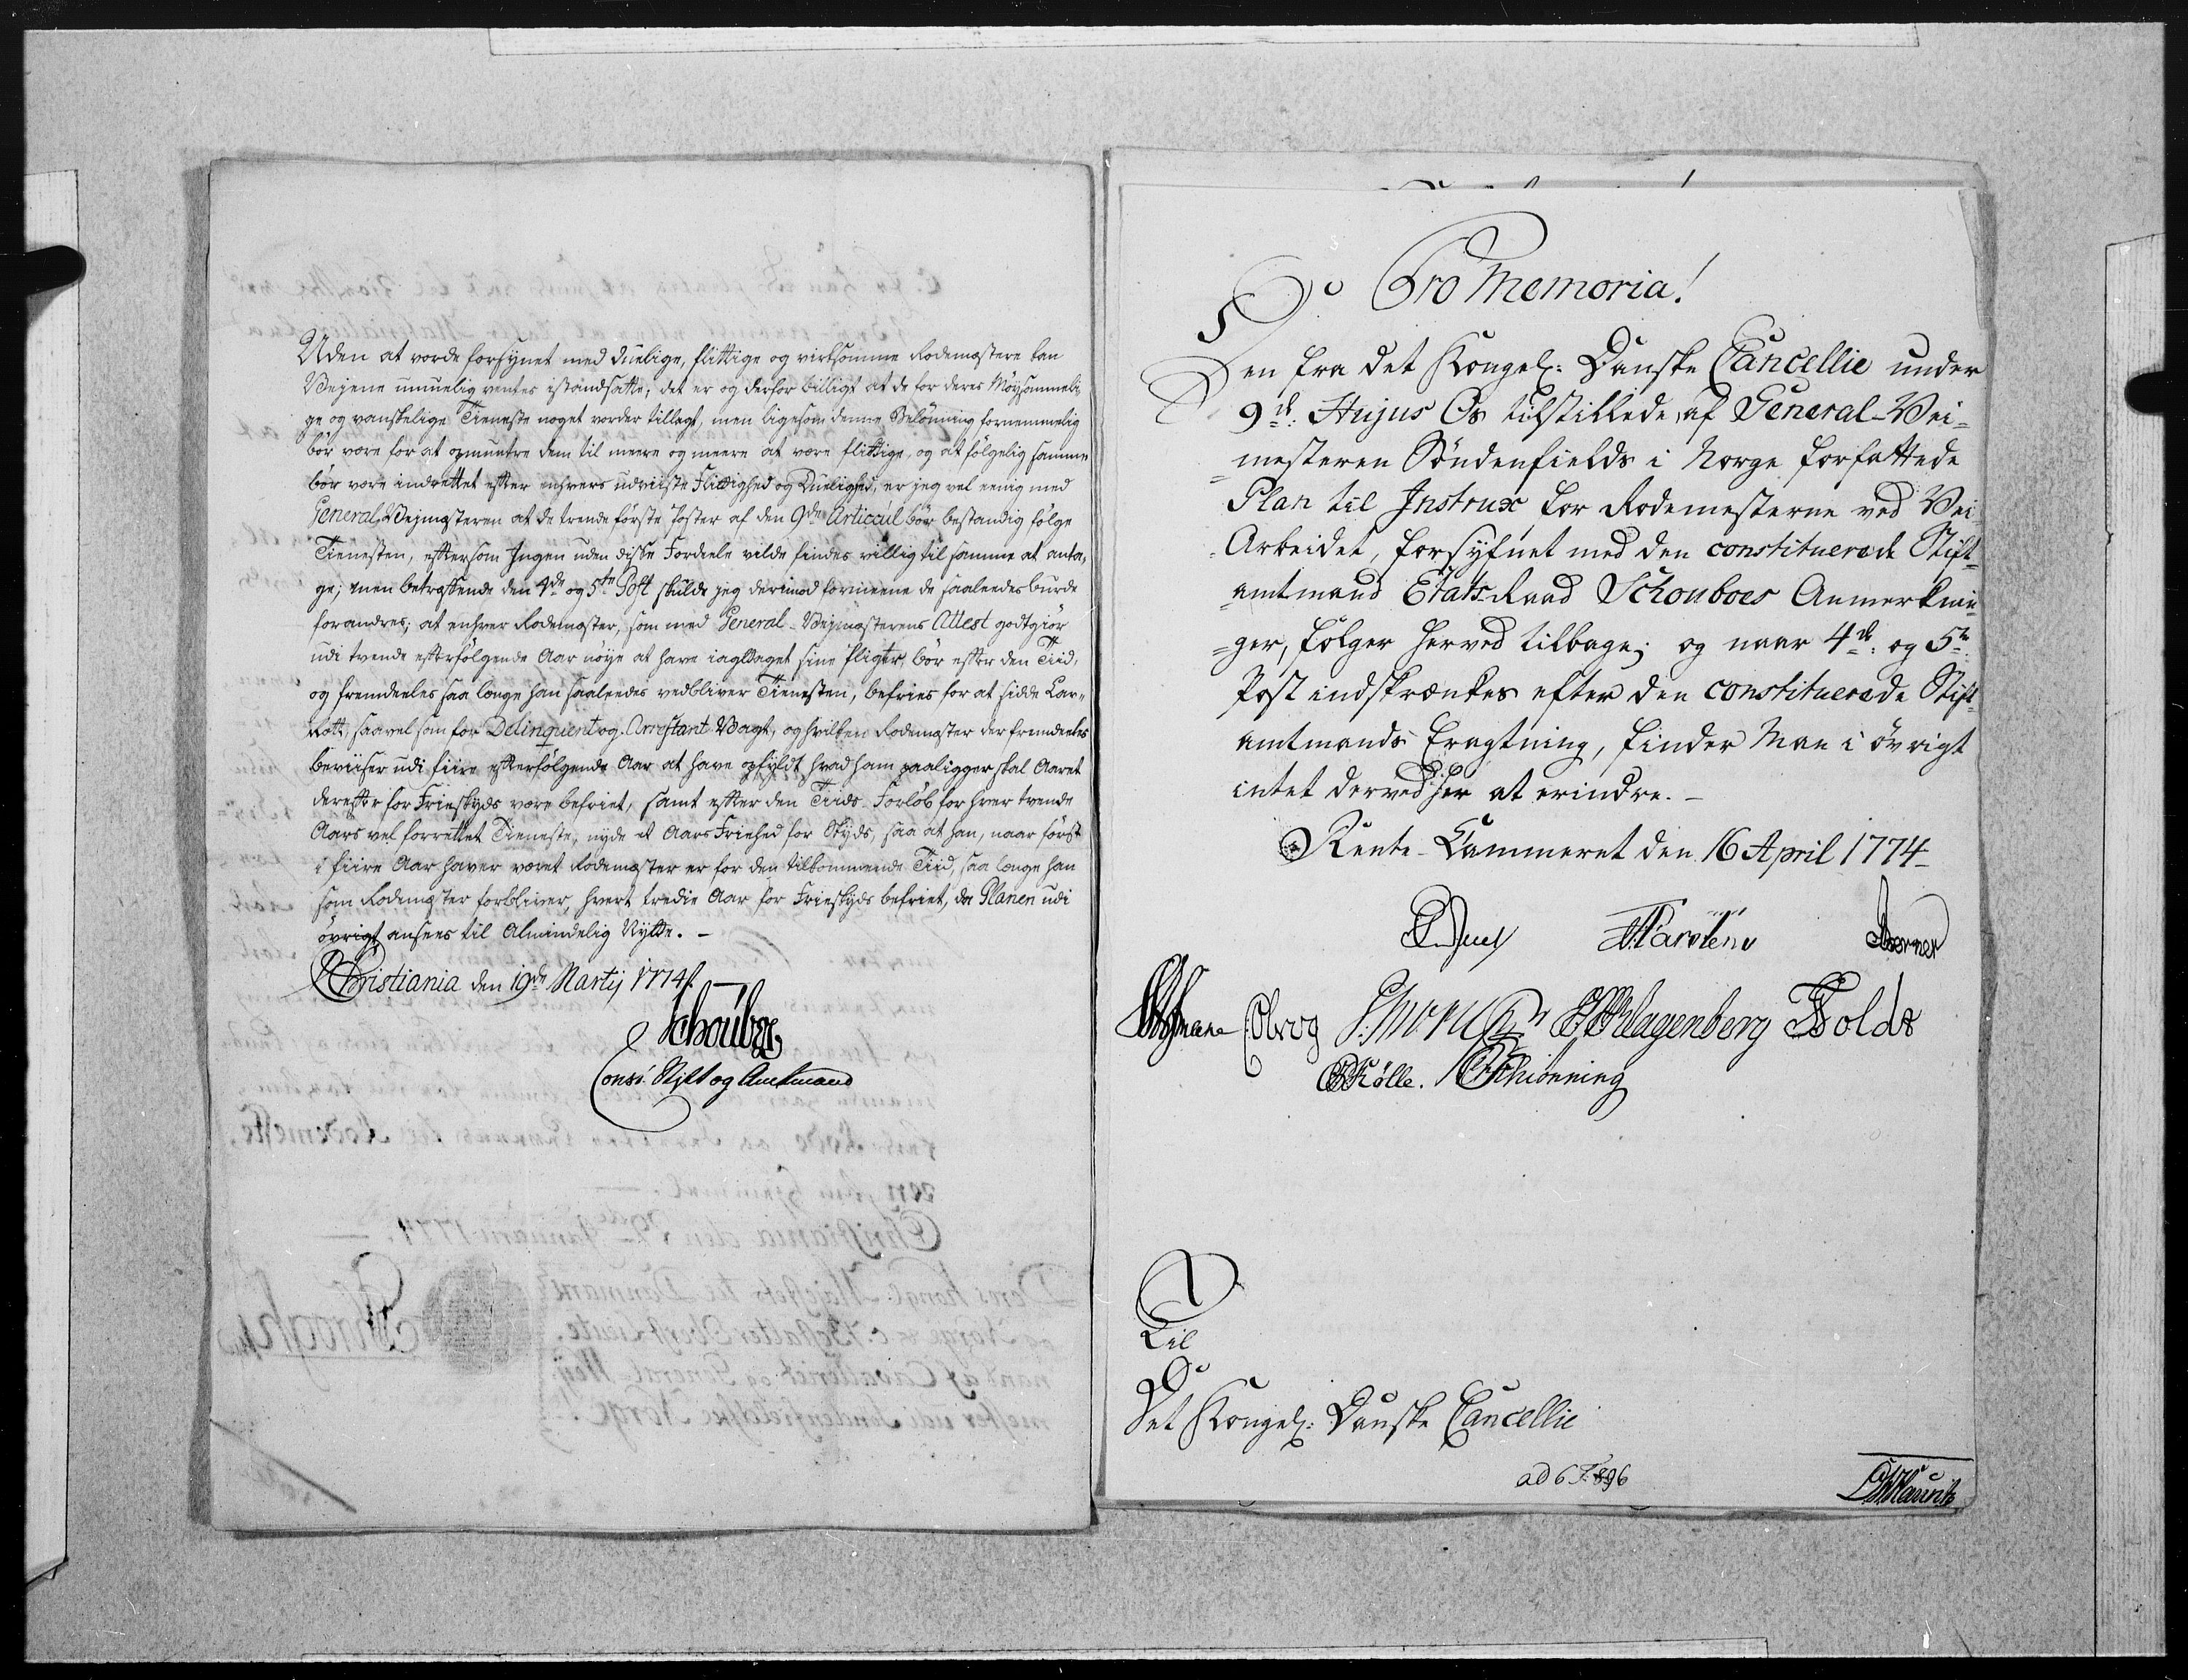 Uden at vorde forsynet med duelige, flittige og virksomme Rodemestere kan
Vejene umuelig ventes istandsatte; det er og derfor billigt at de for deres Möysommeli-
ge og vanskelige Tieneste noget vorder tillagt, men ligesom denne Belönning fornemmelig
bör være for at opmuntre dem til meere og meere at være flittige, og at fölgelig samme
bör være indrettet effter enhvers udviiste Flittighed og Duelighed, er jeg vel eenig med
General Vejmesteren at de trende förste Poster af den 9de Articcul bör bestandig fölge
Tienesten, effersom Ingen uden disse Fordeele vilde findes villig til samme at anta-
ge; men betreffende den 4de og 5te Post skulde jeg derimod formeene de saaleedes burde
forandres; at enhver Rodemester, som med General-Vejmesterens Attest godtgiör
udi tvende effterfölgende Aar nöye at have iagttaget sine Pligter, bör effter den Tiid,
og fremdeeles saa længe han saaleedes vedbliver Tienesten, befries for at sidde Lav-
Rett, saavel som for Delinquent og Arrestant Vagt, og hvilken Rodemester der fremdeeles
beviiser udi fiire effterfölgende Aar at have opfyldt hvad ham paaligger skal Aaret
dereffter for Frieskyds være befriet, samt effter den Tiids Forlöb for hver tvende
Aars vel forrettet Tieneste, nyde et Aars Friehed for Skyds, saa at han, naar först
i fiire Aar haver været Rodemester er for den tilkommende Tiid, saa længe han
som Rodemester forbliver, hvert tredie Aar for Frieskyds befriet, da Planen udi
övrigt ansees til Almindelig Nytte. -
Christiania den 19de Martij 1774. -
Schouboe
Const. Stift og Amtmand
Pro Memoria!
Den fra det Kongel: Danske Cancellie under
9de: Hujus Os tilstillede, af General-Vei-
mesteren Söndenfields i Norge forfattede
Plan til Instrux for Rodemesterne ved Vei-
Arbeidet, forsyfnet med den constituerede Stift-
amtmand Etats-Raad Schouboes Anmerknin-
ger, fölger herved tilbage; og naar 4de: og 5te:
Post indskrænkes efter den constituerede Stift-
amtmands Eragtning, finder Man i övrigt
intet derved her at erindre. -
Rente-Cammeret den 16 April 1774
Carstens Berner
Klagenberg Holdt
Kölle. Schiönning
Til
Det Kongel: Danske Cancellie